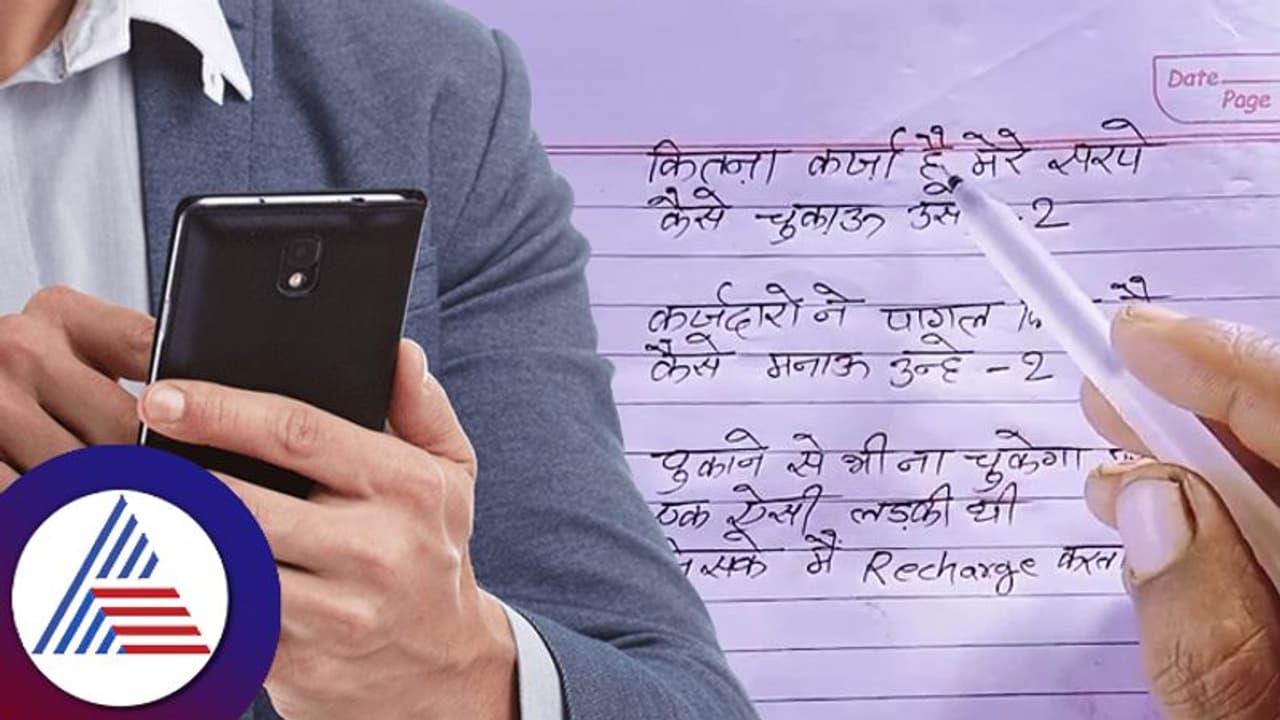 Date
Page
कितना कर्ज़ा है मेरे सरपे
कैसे चुकाऊ उसे -2
कर्ज़दारो ने पागल
कैसे मनाऊ उन्हे -2
चुकाने से भी ना चुकेगा
एक ऐसी लड़की थी
जिसके मैं Recharge करता